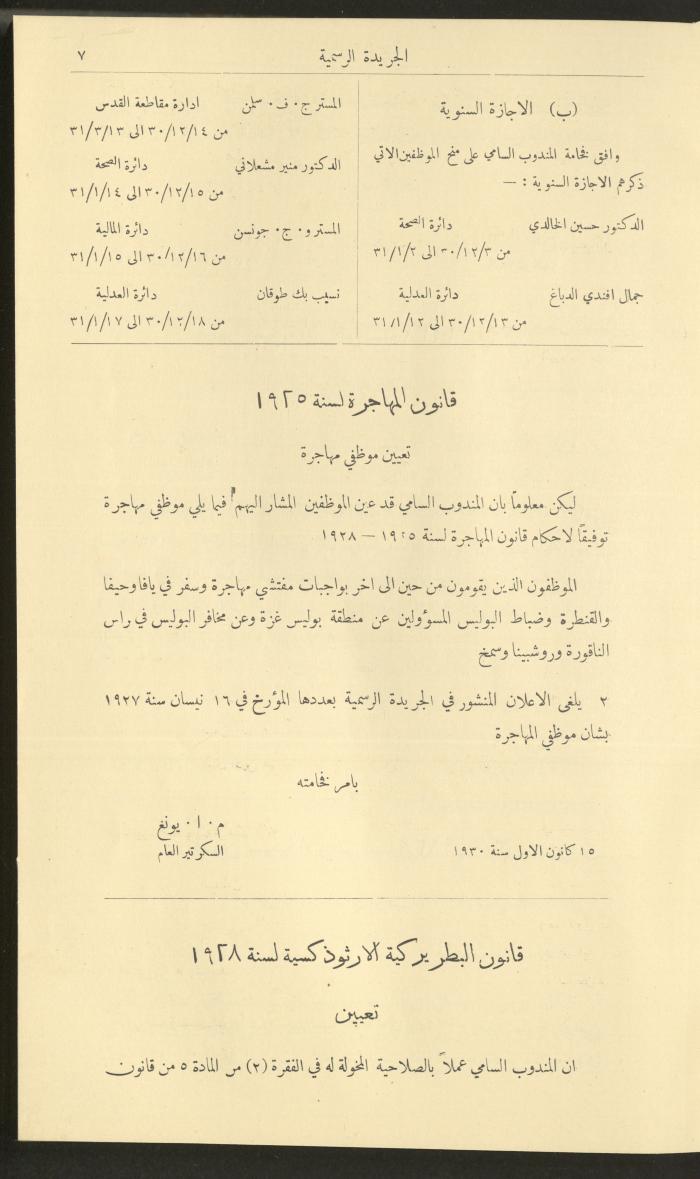 الجريدة الرسمية
٧
(ب) الاجازة السنوية
وافق فخامة المندوب السامي على منح الموظفين الاتي
ذكرهم الاجازة السنوية : —
الدكتور حسين الخالدي دائرة الصحة
من ٣٠/١٢/٣ الى ٣١/١/٢
جمال افندي الدباغ دائرة العدلية
من ٣٠/١٢/١٣ الى ٣١/١/١٢
المستر ج٠ ف٠ سلمن ادارة مقاطعة القدس
من ٣٠/١٢/١٤ الى ٣١/٣/١٣
الدكتور منير مشعلاني دائرة الصحة
من ٣٠/١٢/١٥ الى ٣١/١/١٤
المستر و٠ ج٠ جونسن دائرة المالية
من ٣٠/١٢/١٦ الى ٣١/١/١٥
نسيب بك طوقان دائرة العدلية
من ٣٠/١٢/١٨ الى ٣١/١/١٧
قانون المهاجرة لسنة ١٩٢٥
تعيين موظفي مهاجرة
ليكن معلوماً بان المندوب السامي قد عين الموظفين المشار اليهم فيما يلي موظفي مهاجرة
توفيقاً لاحكام قانون المهاجرة لسنة ١٩٢٥ — ١٩٢٨
الموظفون الذين يقومون من حين الى اخر بواجبات مفتشي مهاجرة وسفر في يافا وحيفا
والقنطرة وضباط البوليس المسؤولين عن منطقة بوليس غزة وعن مخافر البوليس في راس
الناقورة وروشبينا وسمخ
٢ يلغى الاعلان المنشور في الجريدة الرسمية بعددها المؤرخ في ١٦ نيسان سنة ١٩٢٧
بشان موظفي المهاجرة
بامر فخامته
م٠ ا٠ يونغ
١٥ كانون الاول سنة ١٩٣٠ السكرتير العام
قانون البطريركية الارثوذكسية لسنة ١٩٢٨
تعيين
ان المندوب السامي عملاً بالصلاحية المخولة له في الفقرة (٢) من المادة ٥ من قانون